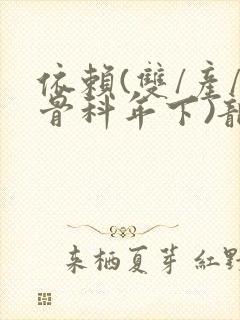 依賴(雙/產/
骨科年下)
来栖夏芽 紅